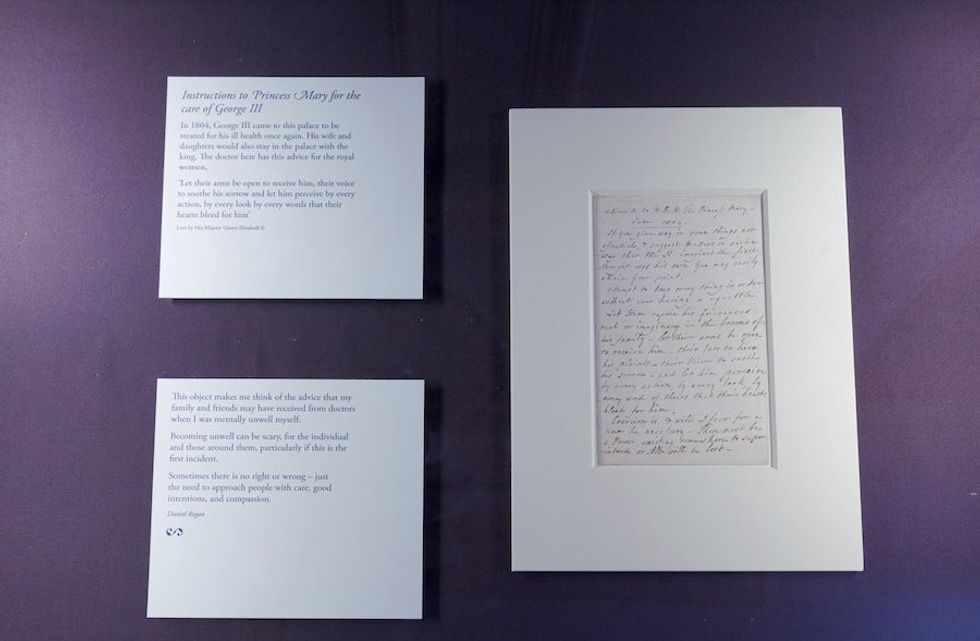 Instructions to Princess Mary for the
care of George III
In 1804, George III came to this palace to be
treated for his ill health once again. His wife and
daughters would also stay in the palace with the
king. The doctor here has this advice for the royal
women,
'Let their arms be open to receive him, their voice
to soothe his sorrow and let him perceive by every
action, by every look by every words that their
hearts bleed for him'
Lent by Her Majesty Queen Elizabeth II
This object makes me think of the advice that my
family and friends may have received from doctors
when I was mentally unwell myself.
Becoming unwell can be scary, for the individual
and those around them, particularly if this is the
first incident.
Sometimes there is no right or wrong – just
the need to approach people with care, good
intentions, and compassion.
Daniel Regan
to H.R.H. The Princess Mary
1804
If you give way in some things not
essential, & suggest in such a
way that the imagines the first
thought was his own you may easily
point.
Attempt to keep every thing in order
without ever having a Squabble.
Let Him repose his grievances
real or imaginary in the bosoms of
his family – let their arms be open
to receive him – their ears to hear
his plaints – their voice to soothe
his sorrow – and let him perceive
by every action, by every look, by
every word of theirs that their hearts
bleed for him.
Coercion is & will I fear for a
time be necessary – There must be
a Power existing somewhere to
or All will be lost –